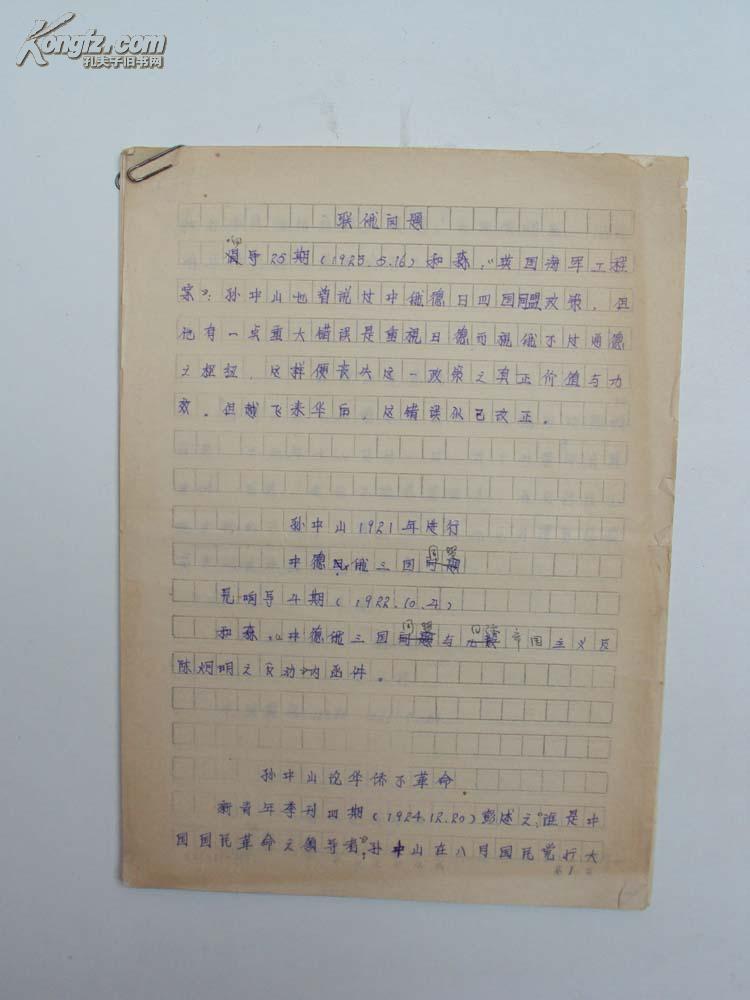 Kongfz.com
孔夫子旧书网
联俄问题
向导25期(1923.5.16)和森:“英国海军工程
案”:孙中山也曾说过中俄德日四国同盟政策,但
他有一点重大错误是重视日德而视俄不过通德
之枢纽,这样便丧失这一政策之真正价值与力
效。但越飞来华后,这错误似已改正。
孙中山1921年进行
中德俄三国同盟
见响导4期(1922.10.4)
和森:“中德俄三国同盟与 帝国主义及
陈炯明之反动”内函件。
孙中山论华侨不革命
新青年季刊四期(1924.12.20)彭述之“谁是中
国国民革命之领导者”:孙中山在八月国民党行大
第1